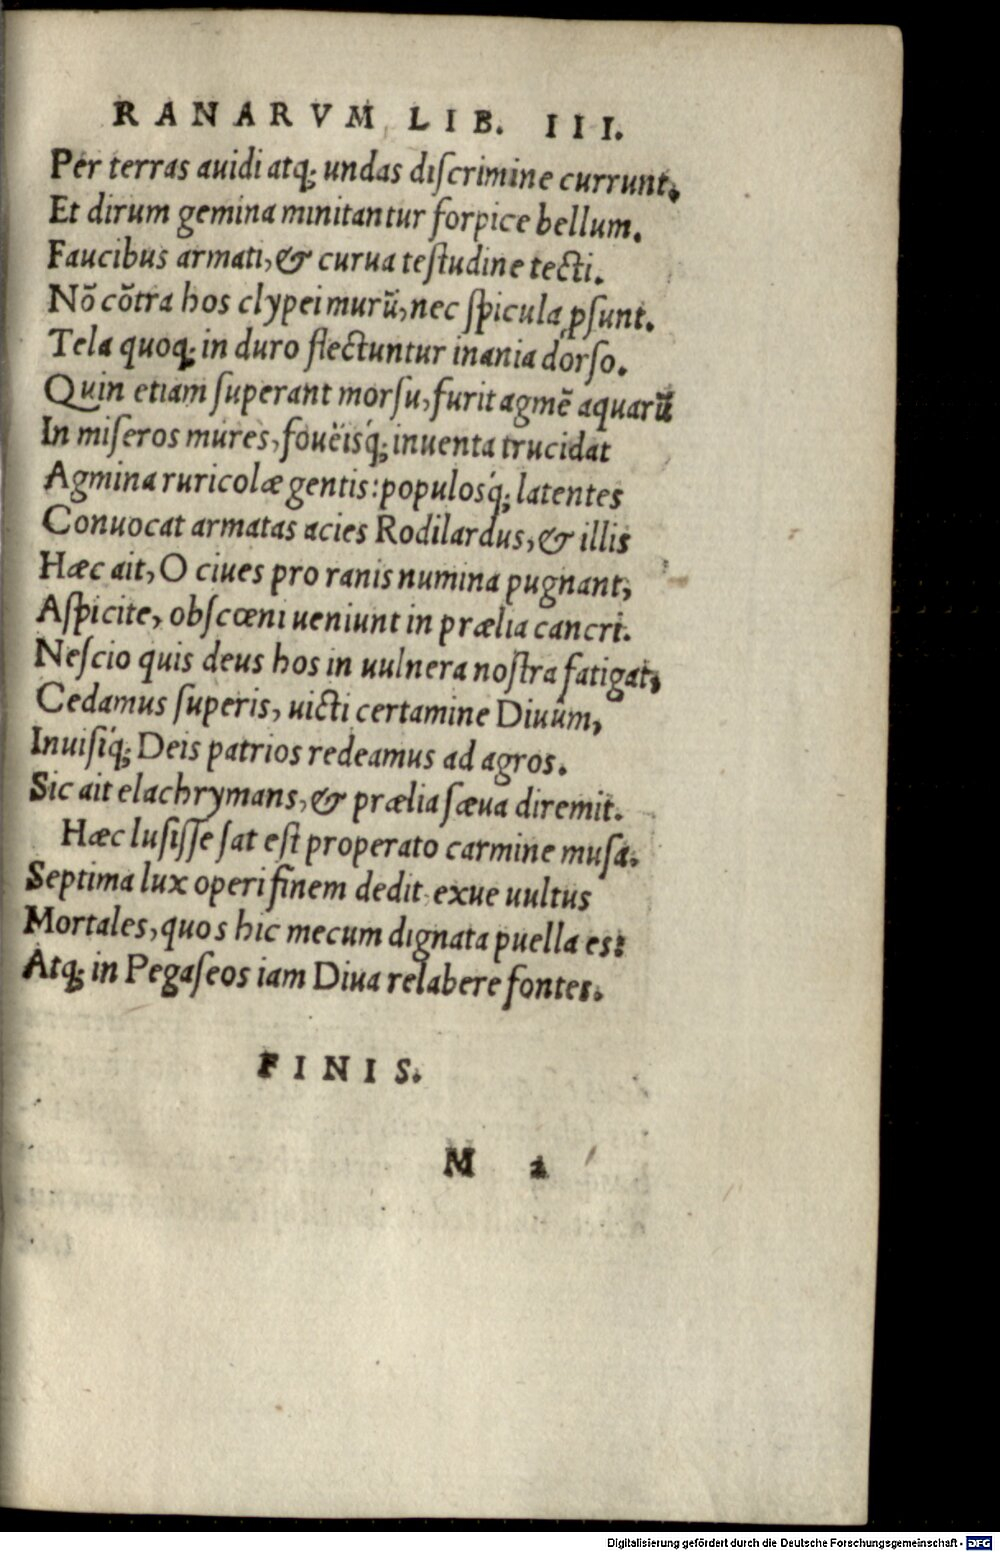 RANARVM LIB. III.
Per terras auidi atq; undas diſcrimine currunt,
Et dirum gemina minitantur forpice bellum.
Faucibus armati, & curua teſtudine tecti.
Nō cōtra hos clypei murū, nec ſpicula ꝓſunt.
Tela quoq; in duro flectuntur inania dorſo.
Quin etiam ſuperant morſu, furit agmē aquarū
In miſeros mures, fouëisq́; inuenta trucidat
Agmina ruricolæ gentis: populosq́; latentes
Conuocat armatas acies Rodilardus, & illis
Hæc ait, O ciues pro ranis numina pugnant,
Aſpicite, obſcœni ueniunt in prælia cancri.
Neſcio quis deus hos in uulnera noſtra fatigat,
Cedamus ſuperis, uicti certamine Diuûm,
Inuiſiq́; Deis patrios redeamus ad agros.
Sic ait elachrymans, & prælia ſæua diremit.
Hæc luſiſſe ſat eſt properato carmine muſa.
Septima lux operi finem dedit exue uultus
Mortales, quos hic mecum dignata puella es:
Atq; in Pegaſeos iam Diua relabere fontes.
FINIS.
M 2
Digitalisierung gefördert durch die Deutsche Forschungsgemeinschaft - DFG